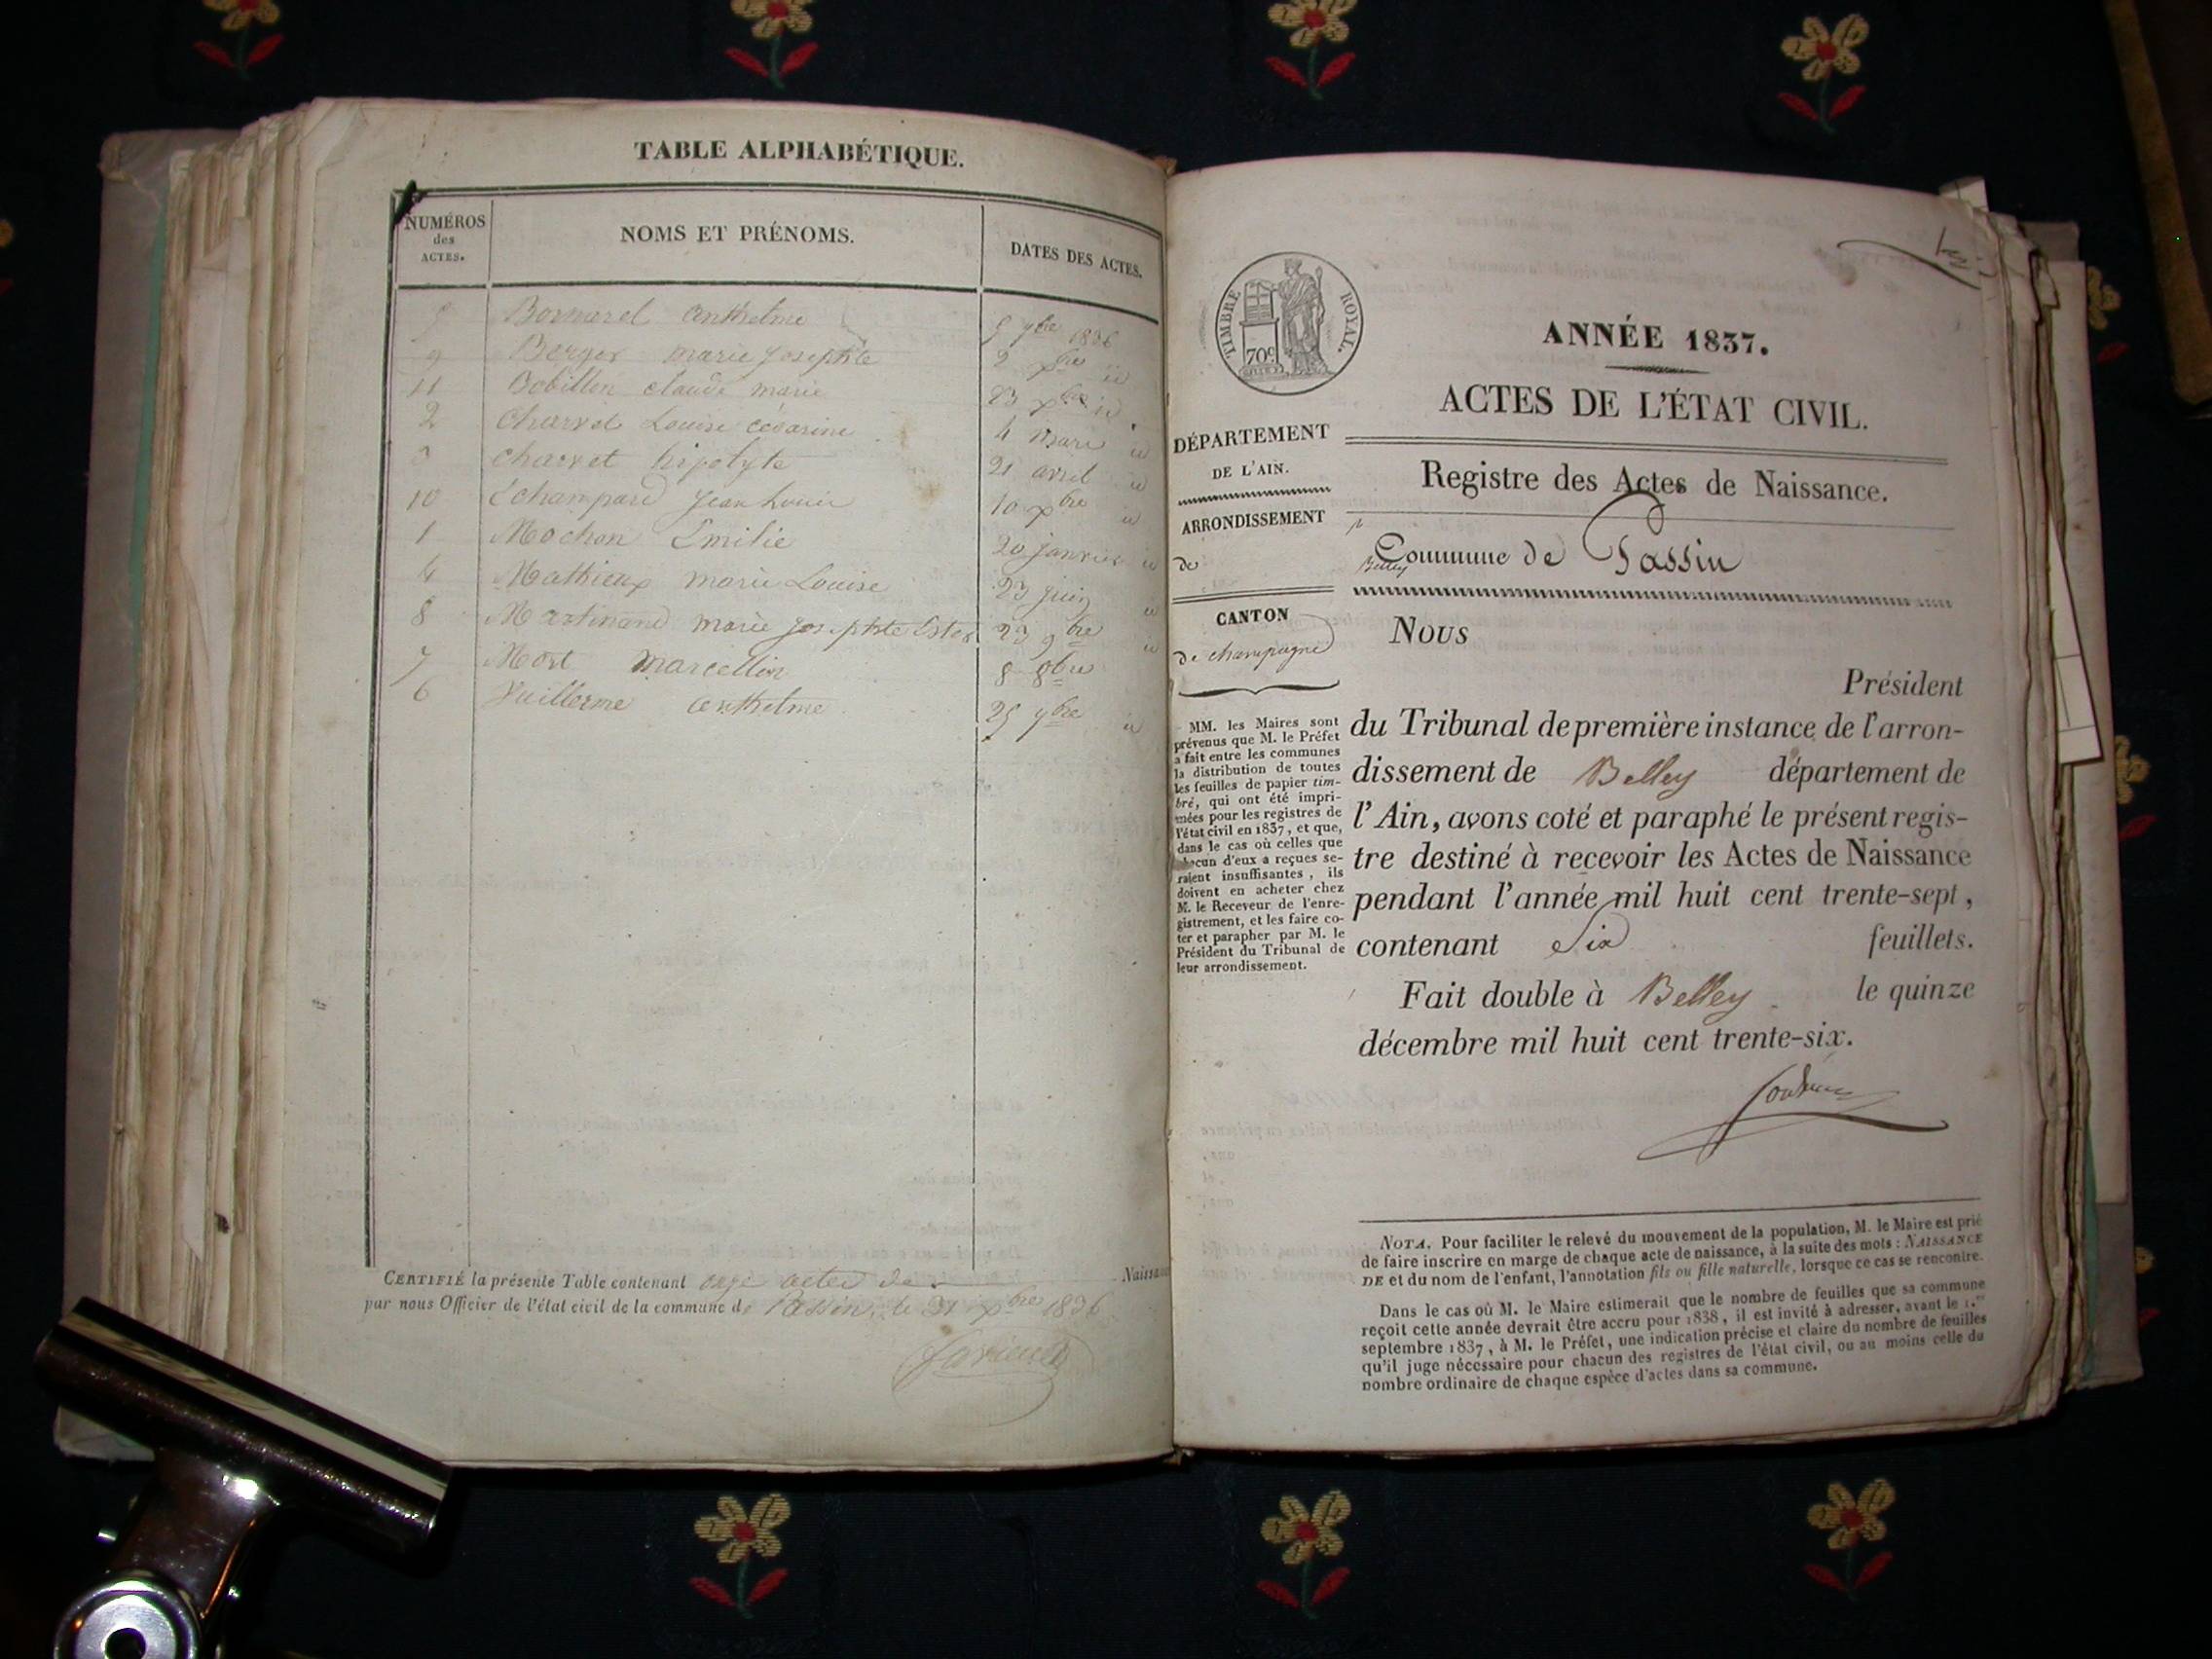 TABLE ALPHABÉTIQUE.
NUMÉROS
des
ACTES.
NOMS ET PRÉNOMS.
DATES DES ACTES.
5 Bornarel anthelme 5 7bre 1836
9 Berger marie Josephte 2 xbre id
11 Bobillon claude marie 23 xbre id
2 Charvet Louise césarine 4 mars id
3 charvet hipolyte 21 avril id
10 Echampard Jean Louis 10 xbre id
1 Mochon Emilie 20 janvier id
4 Mathieux marie Louise 23 juin id
8 Martinand marie josephte Ester 23 9bre id
7 Mort marcellin 8 8bre
6 Vuillerme anthelme 25 7bre id
CERTIFIÉ la présente Table contenant onze actes de Naissa
par nous Officier de l'état civil de la commune de Passin, le 31 xbre 1836
TIMBRE ROYAL.
70c
DÉPARTEMENT
DE L'AIN.
ARRONDISSEMENT
de Belley
CANTON
de champagne
MM. les Maires sont
prévenus que M. le Préfet
a fait entre les communes
la distribution de toutes
les feuilles de papier tim-
bré, qui ont été impri-
mées pour les registres de
l'état civil en 1837, et que,
dans le cas où celles que
chacun d'eux a reçues se-
raient insuffisantes, ils
doivent en acheter chez
M. le Receveur de l'enre-
gistrement, et les faire co-
ter et parapher par M. le
Président du Tribunal de
leur arrondissement.
ANNÉE 1837.
ACTES DE L'ÉTAT CIVIL.
Registre des Actes de Naissance.
Commune de Passin
Nous
Président
du Tribunal de première instance de l'arron-
dissement de Belley département de
l'Ain, avons coté et paraphé le présent regis-
tre destiné à recevoir les Actes de Naissance
pendant l'année mil huit cent trente-sept,
contenant Six feuillets.
Fait double à Belley le quinze
décembre mil huit cent trente-six.
NOTA. Pour faciliter le relevé du mouvement de la population, M. le Maire est prié
de faire inscrire en marge de chaque acte de naissance, à la suite des mots : NAISSANCE
DE et du nom de l'enfant, l'annotation fils ou fille naturelle, lorsque ce cas se rencontre.
Dans le cas où M. le Maire estimerait que le nombre de feuilles que sa commune
reçoit cette année devrait être accru pour 1838, il est invité à adresser, avant le 1.er
septembre 1837, à M. le Préfet, une indication précise et claire du nombre de feuilles
qu'il juge nécessaire pour chacun des registres de l'état civil, ou au moins celle du
nombre ordinaire de chaque espèce d'actes dans sa commune.